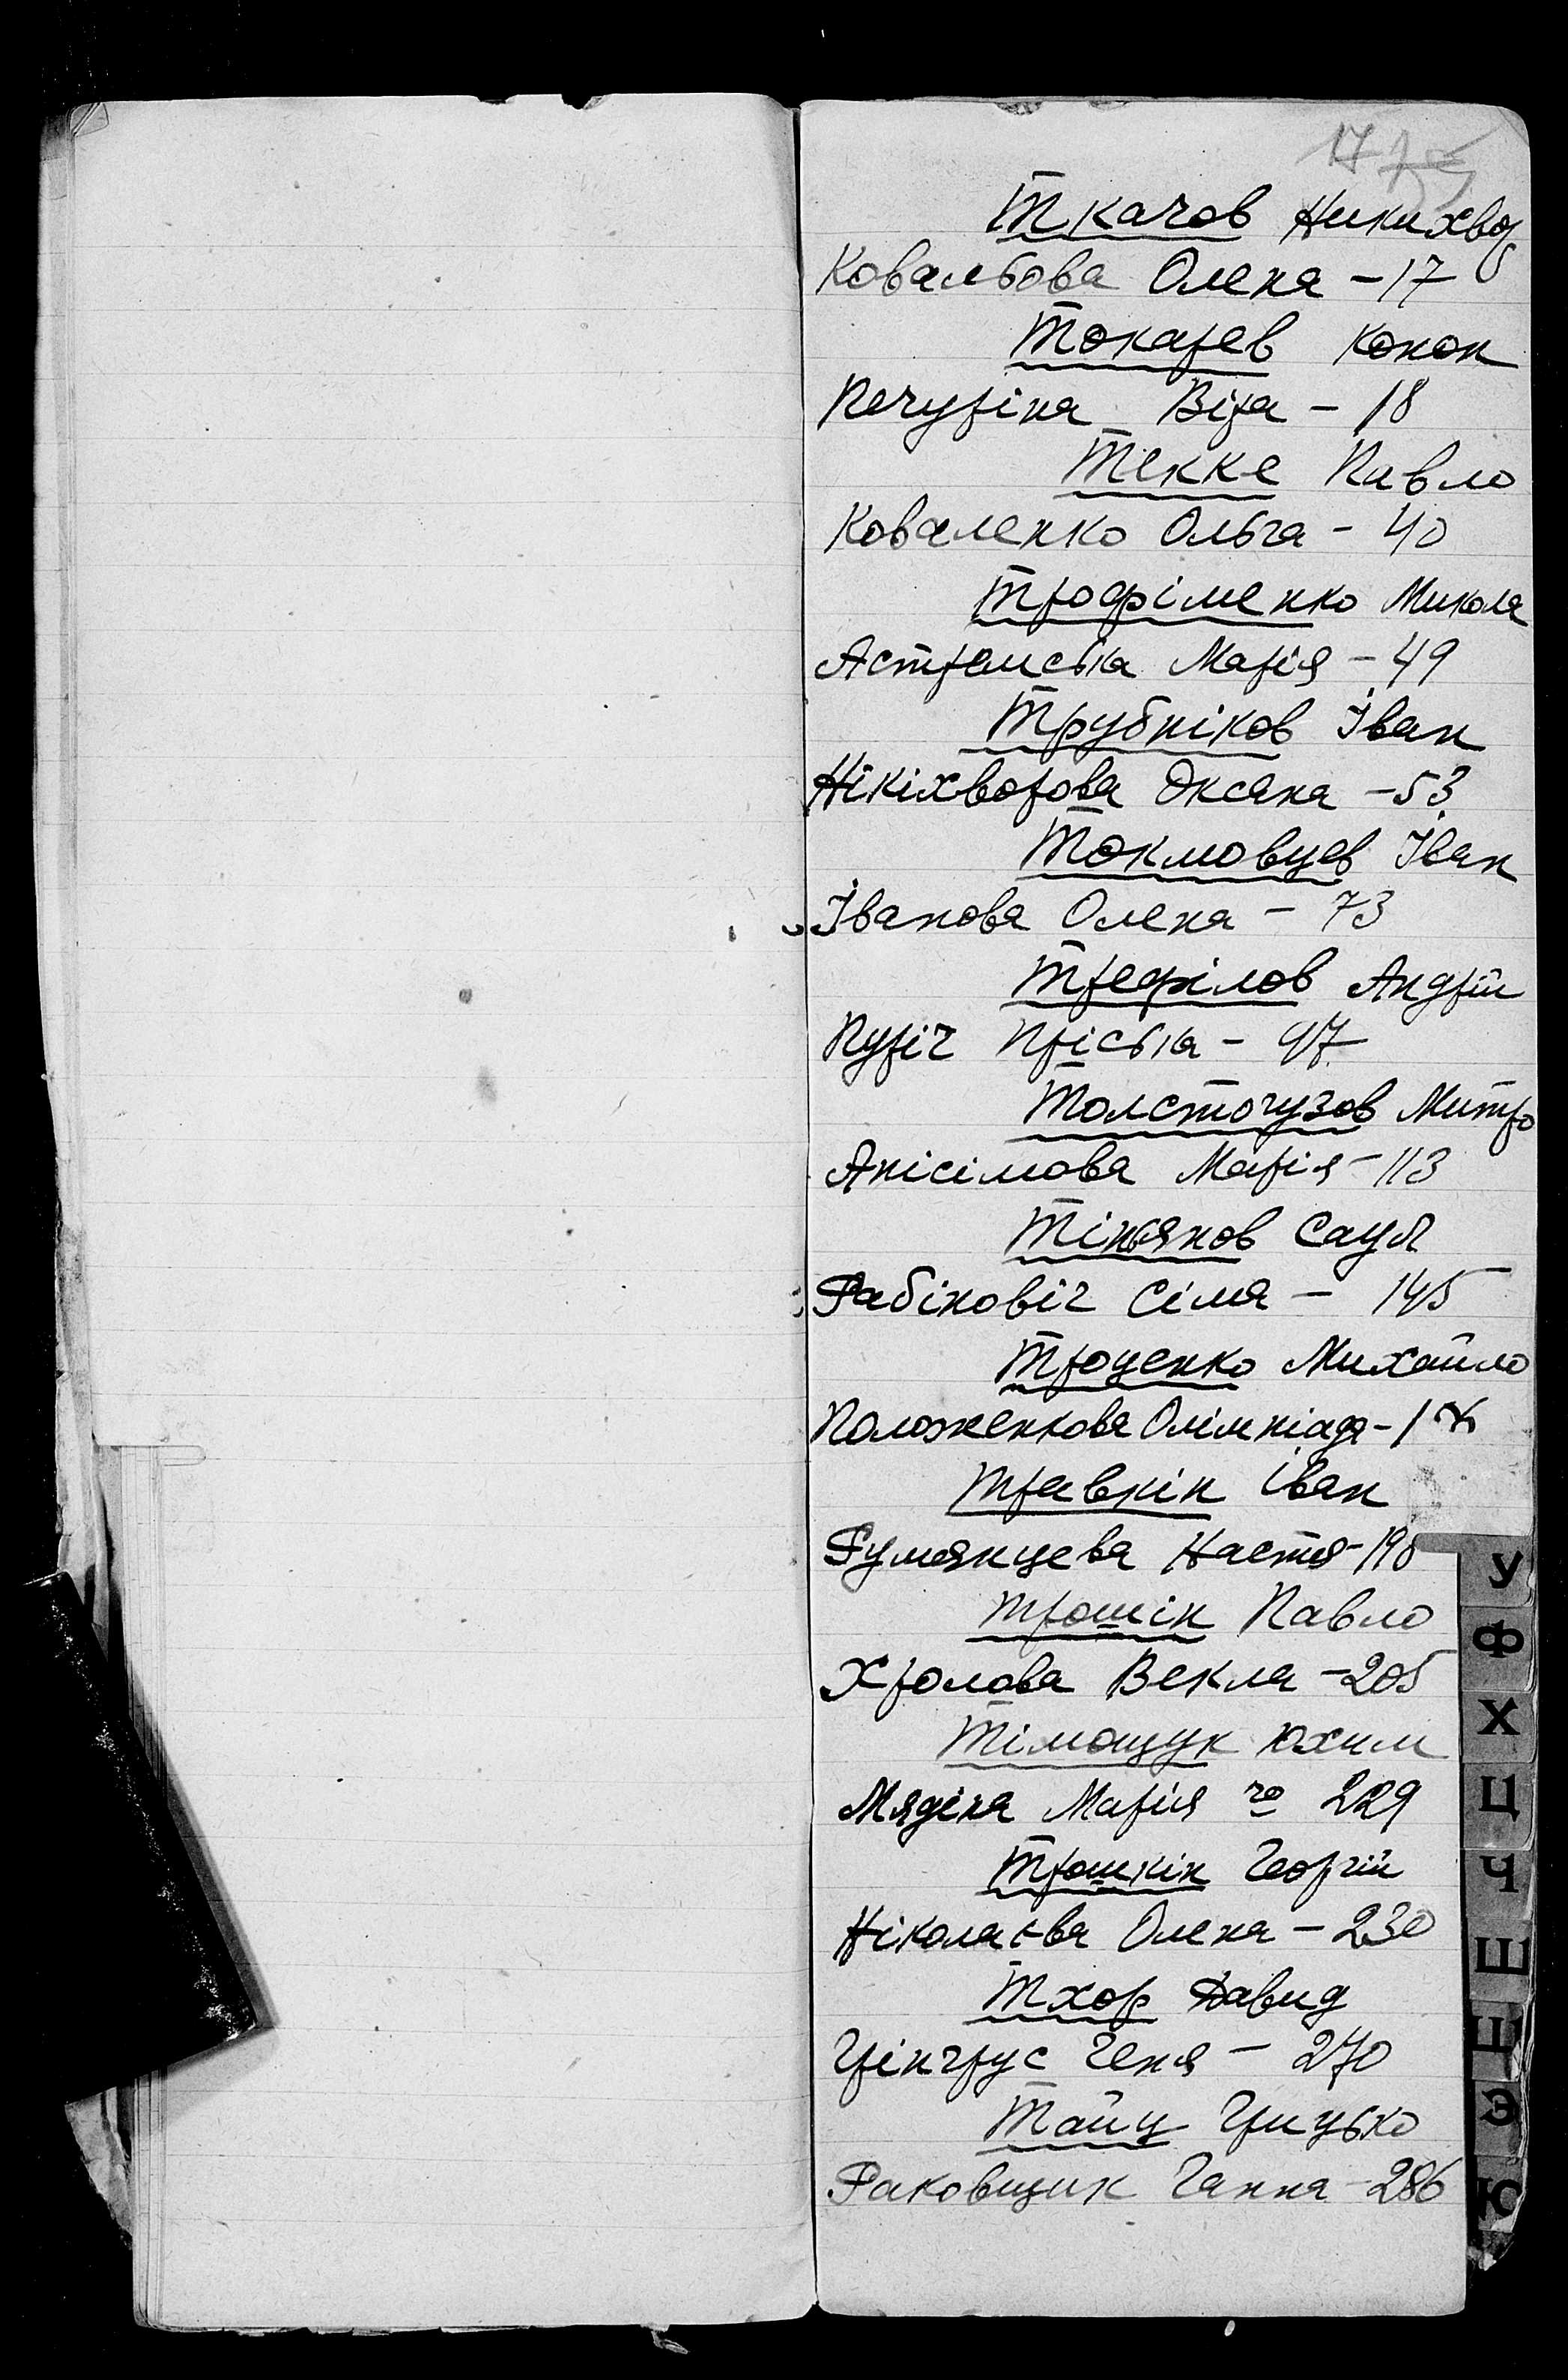 17
Ткачов Никихвор
Ковальова Олена - 17
Токарев Конон
Печуріна Віра - 18
Текке Павло
Коваленко Ольга - 40
Трофіменко Микола
Астрамська Марія - 49
Трубніков Іван
Нікіхворова Оксана - 53
Токмовцев Іван
Іванова Олена - 73
Трефілов Андрій
Пуріч Пріська - 97
Толстогузов Митро
Анісімова Марія - 113
Тіньянов Саул
Рабіновіч Сіма - 145
Троценко Михайло
Положенкова Олімпіада -
Травкін Іван
Румянцева Настя - 198
Трошін Павло
Хролова Векла - 205
Тімощук Юхим
Мядіна Марія го 229
Трошкін Георгій
Ніколаєва Олена - 230
Тхор Давид
Грінгрус Геня - 270
Тайц Грицько
Раковщик Ганна - 286
У
Ф
Х
Ц
Ч
Ш
Щ
Э
Ю